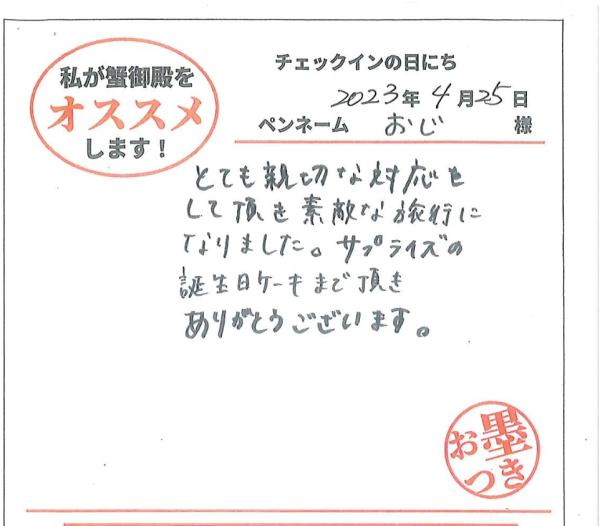 私が蟹御殿を
オススメ
します！
チェックインの日にち
2023年4月25日
ペンネーム おじ 様
とても親切な対応を
して頂き素敵な旅行に
なりました。サプライズの
誕生日ケーキまで頂き
ありがとうございます。
お墨
つき